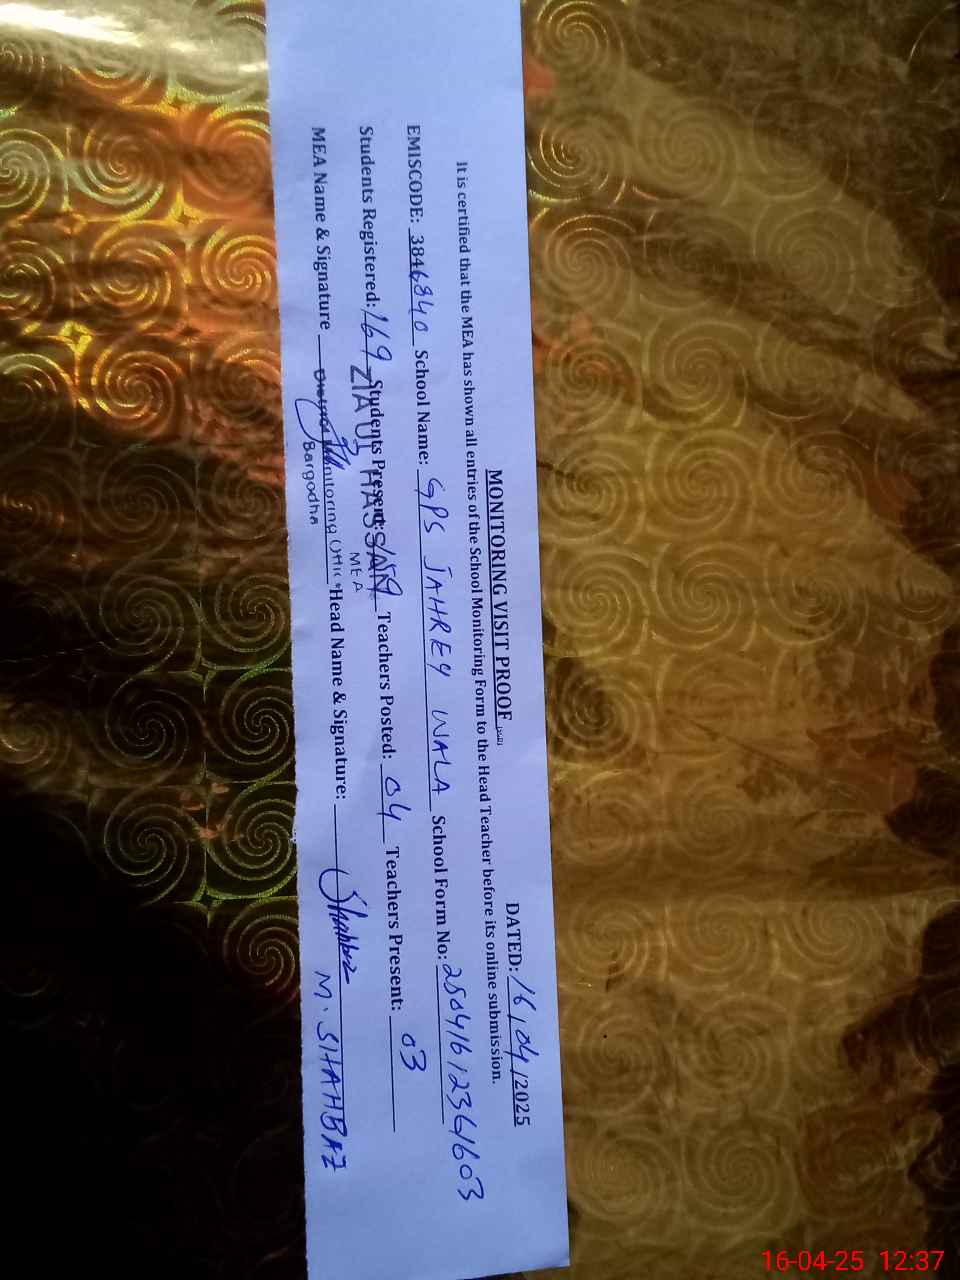 MONITORING VISIT PROOF
DATED: 16/04/2025
It is certified that the MEA has shown all entries of the School Monitoring Form to the Head Teacher before its online submission.
EMISCODE: 3846840 School Name: GPS JAHREY WALA School Form No:
Students Registered: 169 Students Present: Teachers Posted: 04 Teachers Present: 03
ZIA UL HASSAN
MEA
MEA Name & Signature Head Name & Signature: Shahbaz
M. SHAHBAZ
Sargodha
16-04-25 12:37